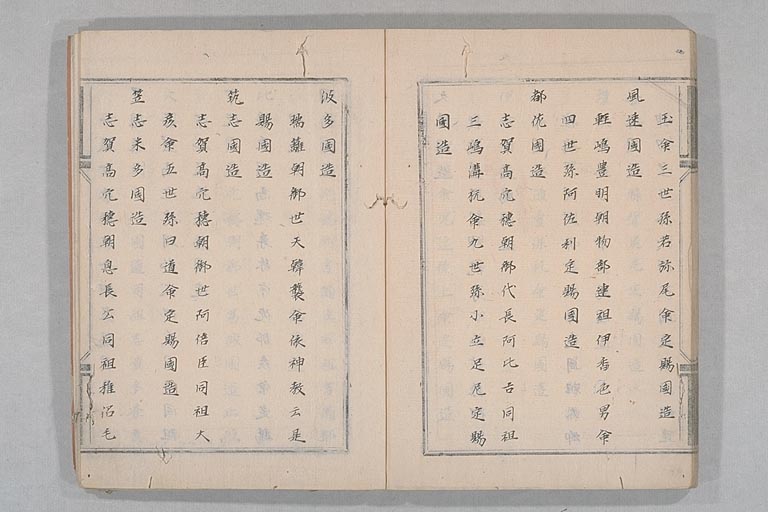 玉命三世孫若弥尾命定賜國造
風速國造
軽嶋豊明朔物部連祖伊香色男命
四世孫阿佐利定賜國造
都佐國造
志賀高穴穗朝御代長阿比古同祖
三嶋溝杭命九世孫小立足尼定賜
國造
波多國造
瑞籬朝御世天韓襲命依神教云是
賜國造
筑志國造
志賀高穴穗朝御世阿倍臣同祖大
彦命五世孫曰道命定賜國造
竺志米多國造
志賀高穴穗朝息長公同祖稚沼毛